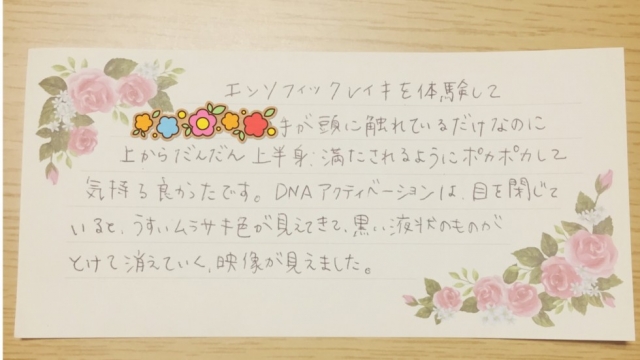 エンソフィックレイキを体験して
手が頭に触れているだけなのに
上からだんだん上半身、満たされるようにポカポカして
気持ち良かったです。DNAアクティベーションは、目を閉じて
いると、うすいムラサキ色が見えてきて、黒い液状のものが
とけて消えていく、映像が見えました。